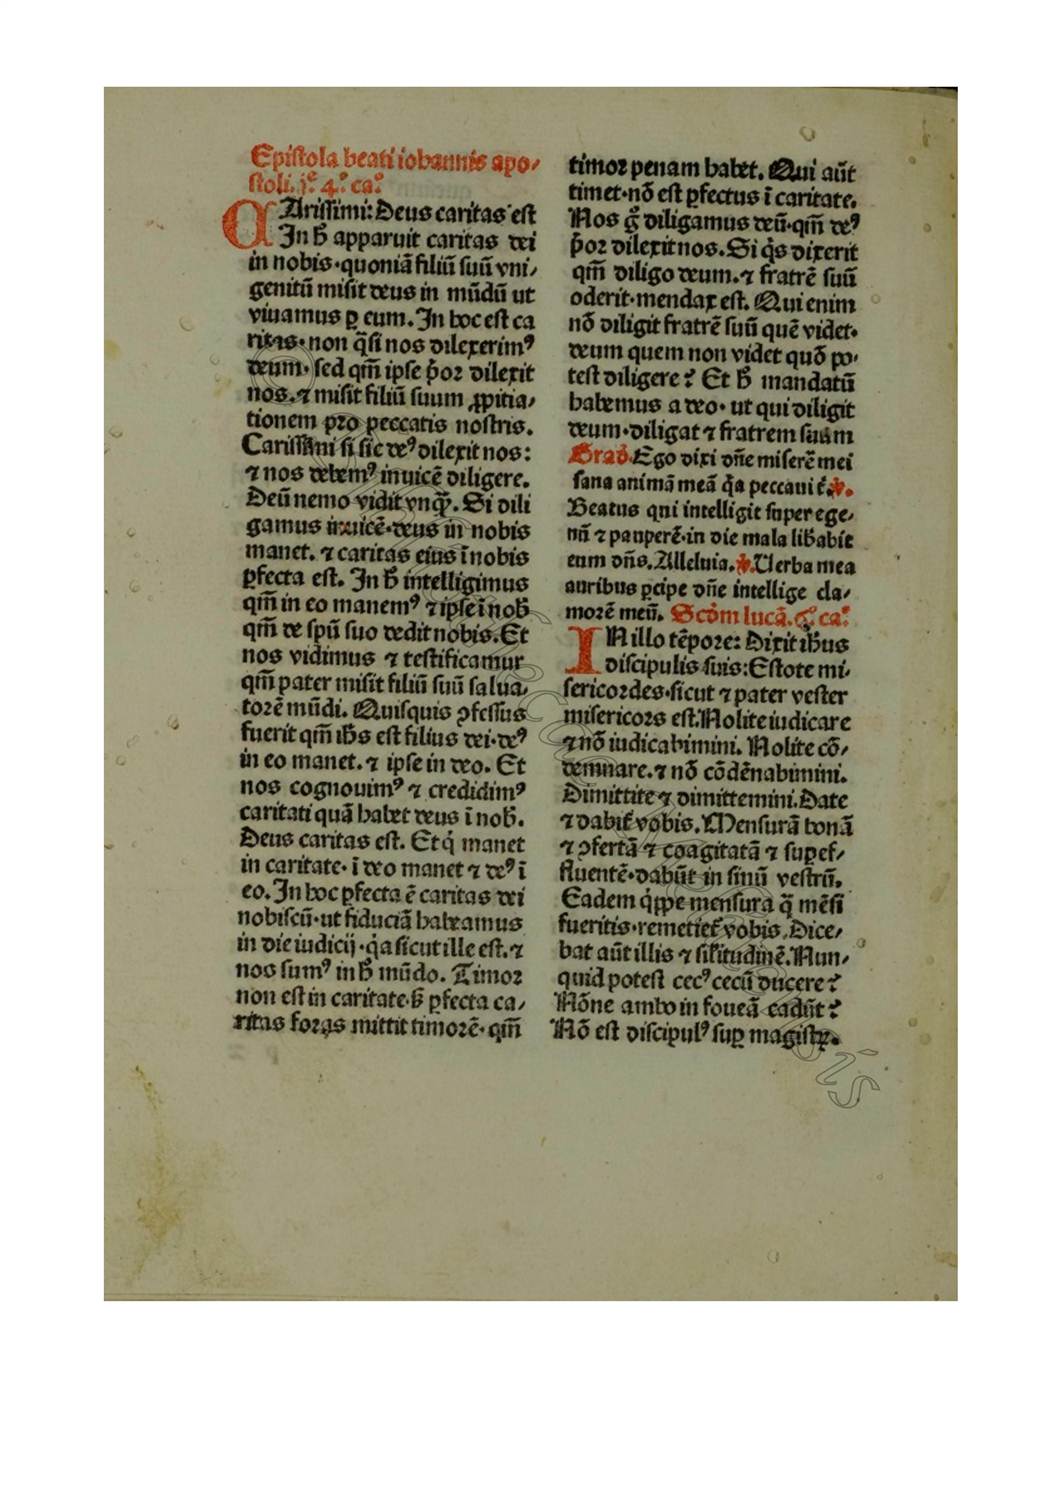 Epistola beati iohannis apo⸗
stoli. j.ᵉ 4.º ca.º
CArissimi: Deus caritas est
In h̄ apparuit caritas dei
in nobis·quoniā filiū suū vni⸗
genitū misit deus in mūdū ut
viuamus ꝑ eum. In hoc est ca
ritas·non q̄si nos dilexerimꝰ
deum·sed qm̄ ipse p̄or dilexit
nos. ⁊ misit filiū suum ꝓpitia⸗
tionem pro peccatis nostris.
Carissimi si sic deꝰ dilexit nos:
⁊ nos debemꝰ inuicē diligere.
Deū nemo vidit vnqͣꝫ. Si dili
gamus inuicē·deus in nobis
manet. ⁊ caritas eius ī nobis
ꝑfecta est. In h̄ intelligimus
qm̄ in eo manemꝰ ⁊ ipse ī nob̄
qm̄ de spū suo dedit nobis. Et
nos vidimus ⁊ testificamur
qm̄ pater misit filiū suū salua⸗
torē mūdi. Quisquis ꝯfessus
fuerit qm̄ ih̄s est filius dei·deꝰ
in eo manet. ⁊ ipse in deo. Et
nos cognouimꝰ ⁊ credidimꝰ
caritati quā habet deus ī nob̄.
Deus caritas est. Et q́ manet
in caritate· ī deo manet ⁊ deꝰ ī
eo. In hoc ꝑfecta ē caritas dei
nobiscū·ut fiduciā habeamus
in die iudicij·q̄a sicut ille est. ⁊
nos sumꝰ in h̄ mūdo. Timor
non est in caritate·ß ꝑfecta ca⸗
ritas foras mittit timorē·qm̄
timor penam habet. Qui aūt
timet·nō est ꝑfectus ī caritate.
Nos gͦ diligamus deū·qm̄ deꝰ
p̄or dilexit nos. Si q́s dixerit
qm̄ diligo deum. ⁊ fratrē suū
oderit·mendax est. Qui enim
nō diligit fratrē suū quē videt·
deum quem non videt quō po⸗
test diligere? Et h̄ mandatū
habemus a deo· ut qui diligit
deum·diligat ⁊ fratrem suum
Gradͦ. Ego dixi dn̄e miserē mei
sana animā meā q̄a peccaui t̄. ℣.
Beatus qui intelligit super ege⸗
nū ⁊ pauperē·in die mala lib̄abit
eum dn̄s. Alleluia. ℣. Uerba mea
auribus ꝑcipe dn̄e intellige cla⸗
morē meū. Scd̄m lucā. 6.º ca.º
IN illo tēpore: Dixit ih̄us
discipulis suis: Estote mi⸗
sericordes·sicut ⁊ pater vester
misericors est. Nolite iudicare
⁊ nō iudicabimini. Nolite cō⸗
demnare. ⁊ nō cōdēnabimini.
Dimittite ⁊ dimittemini. Date
⁊ dabit̄ vobis. Mensurā bonā
⁊ ꝯfertā ⁊ coagitatā ⁊ suꝑef⸗
fluentē·dabūt in sinū vestrū.
Eadem q́ppe mensura q̄ mēsi
fueritis·remetiet̄ vobis. Dice⸗
bat aūt illis ⁊ sil̄itudinē. Nun⸗
quid potest cecꝰ cecū ducere?
Nōne ambo in foueā cadūt?
Nō est discipulꝰ suꝑ magistꝝ.